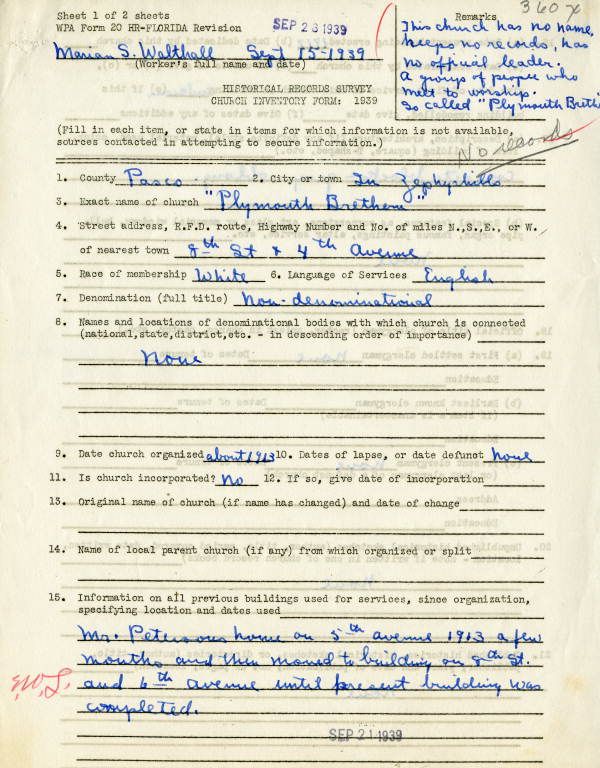 Sheet 1 of 2 sheets
WPA Form 20 HR-FLORIDA Revision
SEP 23 1939
360x
Remarks
This church has no name,
keeps no records, has
no official leader.
A group of people who
meet to worship.
So called "Plymouth Breth
Marian S. Walthall Sept 15-1939
(Worker's full name and date)
HISTORICAL RECORDS SURVEY
CHURCH INVENTORY FORM: 1939
(Fill in each item, or state in items for which information is not available,
sources contacted in attempting to secure information.)
No records
1. County Pasco 2. City or town In Zephyrhills
3. Exact name of church "Plymouth Brethern"
4. Street address, R.F.D. route, Highway Number and No. of miles N.,S.,E., or W.
of nearest town 8th St & 4th Avenue
5. Race of membership White 6. Language of Services English
7. Denomination (full title) Non-denominational
8. Names and locations of denominational bodies with which church is connected
(national,state,district,etc. - in descending order of importance)
None
9. Date church organized about 1913 10. Dates of lapse, or date defunct none
11. Is church incorporated? No 12. If so, give date of incorporation
13. Original name of church (if name has changed) and date of change
14. Name of local parent church (if any) from which organized or split
15. Information on all previous buildings used for services, since organization,
specifying location and dates used
Mr. Petersons home on 5th avenue 1913 a few
months and then moved to building on 8th St.
and 6th avenue until present building was
completed.
SEP 21 1939